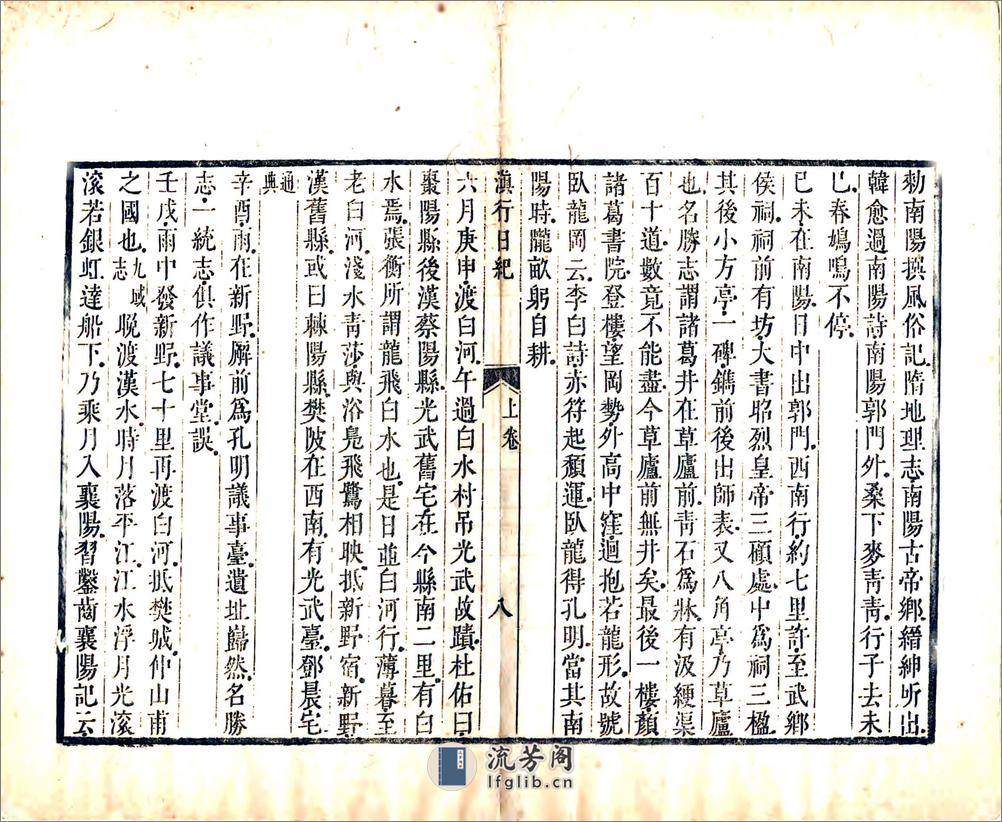 勅南陽撰風俗記隋地理志南陽古帝鄉縉紳所出
韓愈過南陽詩南陽郭門外桑下麥靑靑行子去未
已春鳩鳴不停
己未在南陽日中出郭門西南行約七里許至武鄉
侯祠祠前有坊大書昭烈皇帝三顧處中爲祠三楹
其後小方亭一碑鐫前後出師表又八角亭乃草廬
也名勝志謂諸葛井在草廬前靑石爲牀有汲綆渠
百十道數竟不能盡今草廬前無井矣最後一樓顏
諸葛書院登樓望岡勢外高中窪迴抱若龍形故號
臥龍岡云李白詩赤符起頹運臥龍得孔明當其南
陽時隴畝躬自耕
滇行日紀 上卷 八
六月庚申渡白河午過白水村弔光武故蹟杜佑曰
棗陽縣後漢蔡陽縣光武舊宅在今縣南二里有白
水焉張衡所謂龍飛白水也是日並白河行薄暮至
老白河淺水靑莎與浴鳧飛鷺相映抵新野宿新野
漢舊縣或曰棘陽縣樊陂在西南有光武臺鄧晨宅
通典
辛酉雨在新野廨前爲孔明議事臺遺址巋然名勝
志一統志俱作議事堂誤
壬戌雨中發新野七十里再渡白河抵樊城仲山甫
之國也九域志晚渡漢水時月落平江江水浮月光滾
滾若銀虹達船下乃乘月入襄陽習鑿齒襄陽記云
流芳阁
lfglib.cn